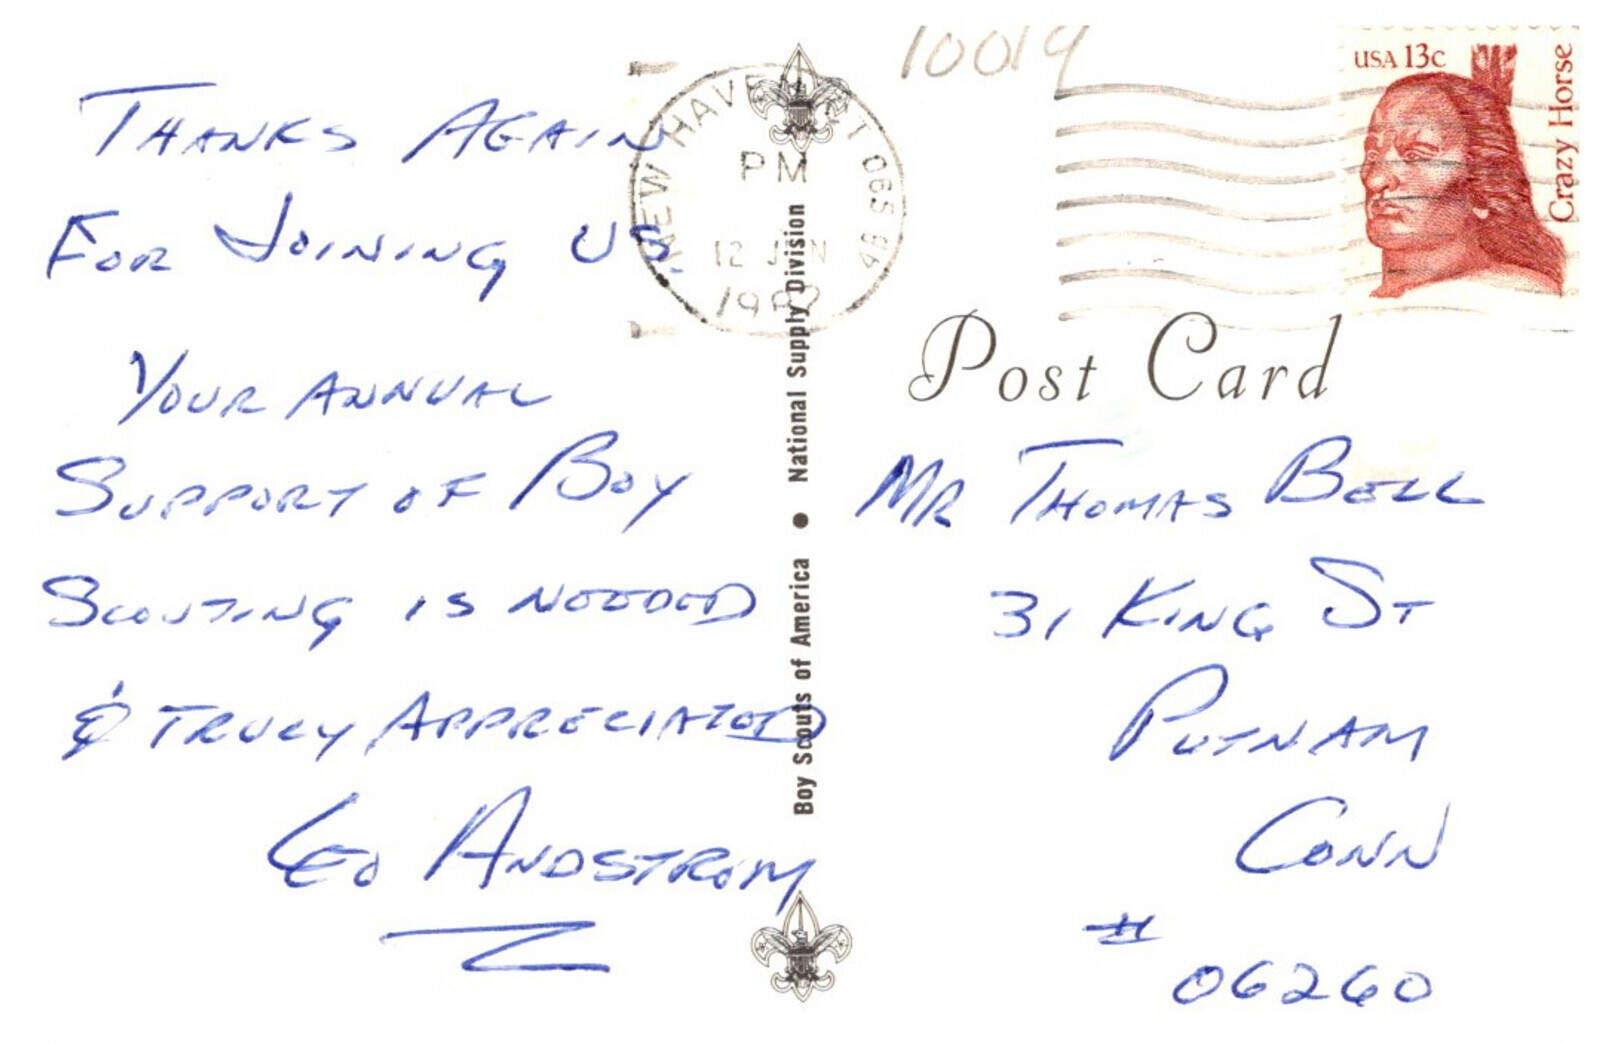 THANKS AGAIN
FOR JOINING US.
YOUR ANNUAL
SUPPORT OF BOY
SCOUTING IS NEEDED
& TRULY APPRECIATED
LEO ANDSTROM
NEW HAVEN CT 065
PM
12 JUN
1982
Boy Scouts of America • National Supply Division
10019
USA 13c
Crazy Horse
Post Card
MR THOMAS BELL
31 KING ST
PUTNAM
CONN
#
06260